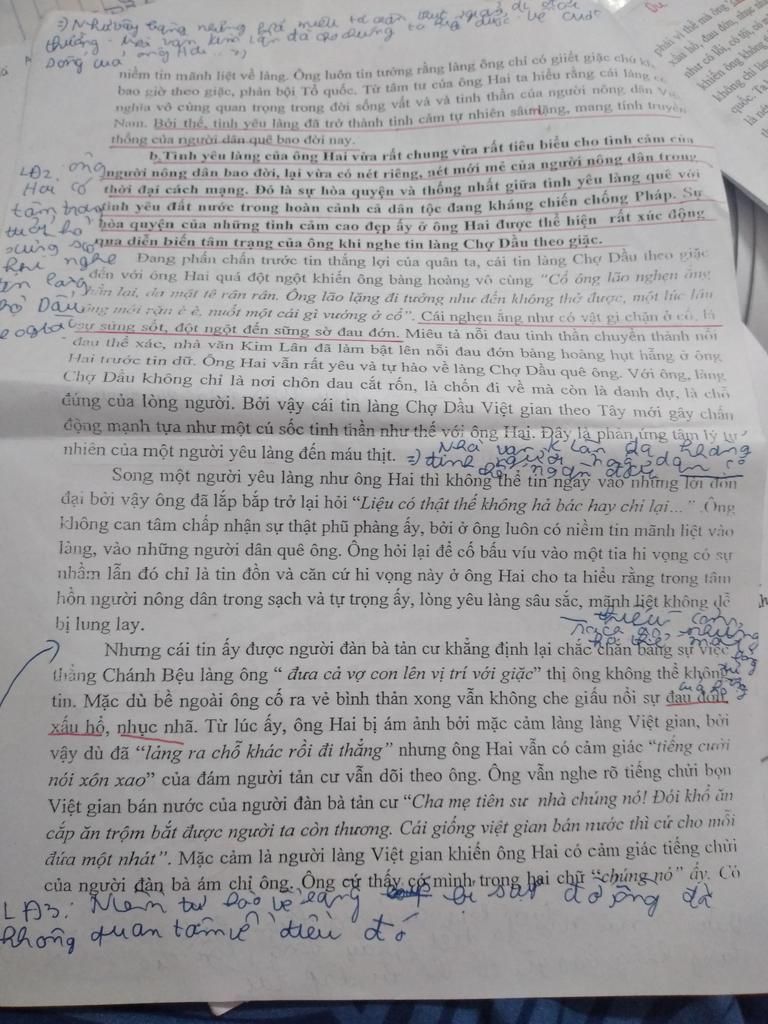 =) Như vậy bằng những
niềm tin mãnh liệt về làng. Ông luôn tin tưởng rằng làng ông chỉ có giiết giặc chứ k
bao giờ theo giặc, phản bội Tổ quốc. Từ tâm tư của ông Hai ta hiểu rằng cái làng có
nghĩa vô cùng quan trọng trong đời sống vất vả và tinh thần của người nông dân Vi
Nam. Bởi thế, tình yêu làng đã trở thành tình cảm tự nhiên sâu nặng, mang tính truyền
thống của người dân quê bao đời nay.
b. Tình yêu làng của ông Hai vừa rất chung vừa rất tiêu biểu cho tình cảm của
người nông dân bao đời, lại vừa có nét riêng, nét mới mẻ của người nông dân trong
thời đại cách mạng. Đó là sự hòa quyện và thống nhất giữa tình yêu làng quê với
tình yêu đất nước trong hoàn cảnh cả dân tộc đang kháng chiến chống Pháp. Sự
hòa quyện của những tình cảm cao đẹp ấy ở ông Hai được thể hiện rất xúc động
qua diễn biến tâm trạng của ông khi nghe tin làng Chợ Dầu theo giặc.
LĐ2: ông
Hai có
tâm trạng
tủi hổ
sững sờ
khi nghe
tin làng
Đang phấn chấn trước tin thắng lợi của quân ta, cái tin làng Chợ Dầu theo giặc
đến với ông Hai quá đột ngột khiến ông bàng hoàng vô cùng “Cổ ông lão nghẹn ắng
hẳn lại, da mặt tê rân rân. Ông lão lặng đi tưởng như đến không thở được, một lúc lâu
ông mới rặn è è, nuốt một cái gì vướng ở cổ”. Cái nghẹn ắng như có vật gì chặn ở cổ, là
sự sửng sốt, đột ngột đến sững sờ đau đớn. Miêu tả nỗi đau tinh thần chuyển thành nỗi
đau thể xác, nhà văn Kim Lân đã làm bật lên nỗi đau đớn bàng hoàng hụt hẫng ở ông
Hai trước tin dữ. Ông Hai vẫn rất yêu và tự hào về làng Chợ Dầu quê ông. Với ông, làng
Chợ Dầu không chỉ là nơi chôn dau cắt rốn, là chốn đi về mà còn là danh dự, là chỗ
đứng của lòng người. Bởi vậy cái tin làng Chợ Dầu Việt gian theo Tây mới gây chấn
động mạnh tựa như một cú sốc tinh thần như thế với ông Hai. Đây là phản ứng tâm lý tự
nhiên của một người yêu làng đến máu thịt.
Song một người yêu làng như ông Hai thì không thể tin ngay vào những lời đồn
đại bởi vậy ông đã lắp bắp trở lại hỏi “Liệu có thật thế không hả bác hay chỉ lại...” .Ông
không can tâm chấp nhận sự thật phũ phàng ấy, bởi ở ông luôn có niềm tin mãnh liệt vào
làng, vào những người dân quê ông. Ông hỏi lại để cố bấu víu vào một tia hi vọng có sự
nhầm lẫn đó chỉ là tin đồn và căn cứ hi vọng này ở ông Hai cho ta hiểu rằng trong tâm
hồn người nông dân trong sạch và tự trọng ấy, lòng yêu làng sâu sắc, mãnh liệt không dễ
bị lung lay.
Nhưng cái tin ấy được người đàn bà tản cư khẳng định lại chắc chắn bằng sự việc
thằng Chánh Bệu làng ông “ đưa cả vợ con lên vị trí với giặc” thị ông không thể không
tin. Mặc dù bề ngoài ông cố ra vẻ bình thản xong vẫn không che giấu nổi sự đau đớn,
xấu hổ, nhục nhã. Từ lúc ấy, ông Hai bị ám ảnh bởi mặc cảm làng làng Việt gian, bởi
vậy dù đã “lảng ra chỗ khác rồi đi thẳng” nhưng ông Hai vẫn có cảm giác “tiếng cười
nói xôn xao” của đám người tản cư vẫn dõi theo ông. Ông vẫn nghe rõ tiếng chửi bọn
Việt gian bán nước của người đàn bà tản cư “Cha mẹ tiên sư nhà chúng nó! Đói khổ ăn
cắp ăn trộm bắt được người ta còn thương. Cái giống việt gian bán nước thì cứ cho mỗi
đứa một nhát”. Mặc cảm là người làng Việt gian khiến ông Hai có cảm giác tiếng chửi
của người đàn bà ám chỉ ông. Ông cứ thấy có mình trong hai chữ “chúng nó” ấy. Có
LĐ3: Niềm tự hào về làng bị sụp đổ ông đã
không quan tâm về điều đó